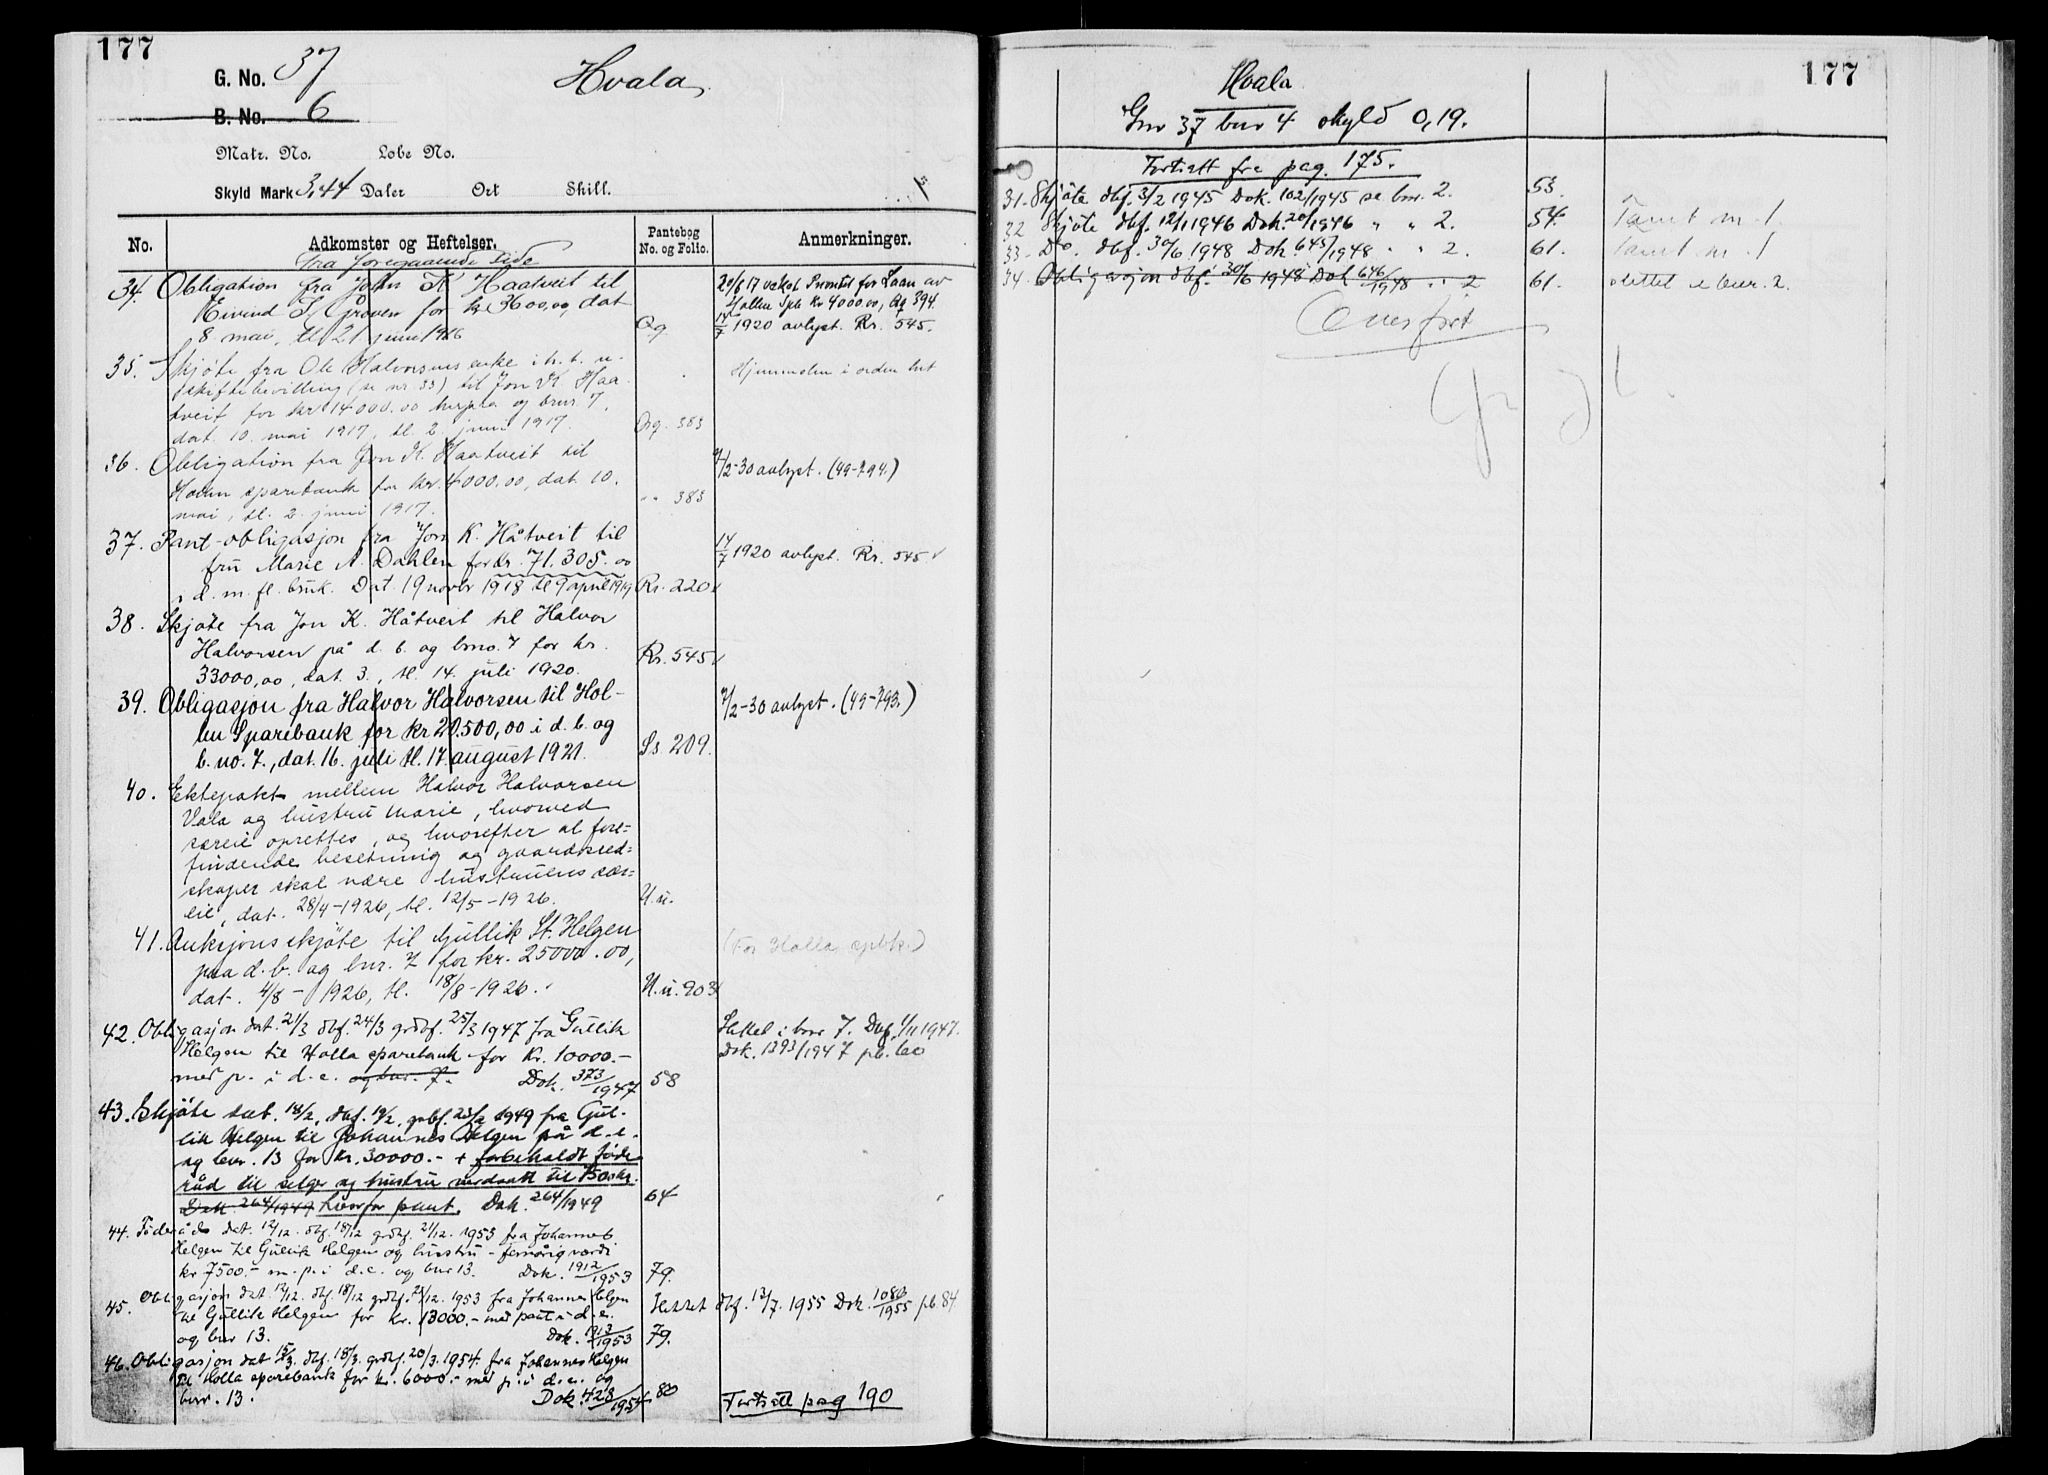 177
G. No. 37
Hvala
B. No. 6
Matr. No. Løbe No.
Skyld Mark 3,44 Daler Ort Skill.
No.
Adkomster og Heftelser.
Pantebog No. og Folio.
Anmerkninger.
Fra foregaaende side
34. Obligation fra John K. Haatveit til
Eivind T. Groven for kr 3600,00, dat
8. mai, tl. 21 juni 1916
Qq
20/6 17 veket Prioritet for Laan av
Hollen Spb Kr 4000.00, Qq 394.
14/7 1920 avlyst. Rr. 545.
35. Skjøte fra Ole Halvorsens enke i h. t. u-
skiftebevilling (se nr 33) til Jon K. Haa
tveit for kr 14000.00 herpaa og bnr. 7,
dat. 10. mai 1917, tl. 2. juni 1917.
Qq. 383
Hjemmelen i orden
36. Obligation fra Jon K. Haatveit til
Hollen sparebank for kr. 4000.00, dat. 10.
mai, tl. 2. juni 1917.
" 383
7/2-30 avlyst. (49-794.)
37. Pant-obligasjon fra Jon K. Håtveit til
fru Marie A. Dahlen for kr. 71.305.00
i d. m. fl. bruk. Dat. 19 novbr 1918 tl 9 april 1919
Rr. 220
14/7 1920 avlyst. Rr. 545
38. Skjøte fra Jon K. Håtveit til Halvor
Halvorsen på d. b. og bno. 7 for kr.
33000,00, dat. 3., tl. 14. juli 1920.
Rr. 545
39. Obligasjon fra Halvor Halvorsen til Hol-
len Sparebank for kr 20.500,00 i d. b. og
b. no. 7., dat. 16. juli tl. 17. august 1921.
Ss. 209.
7/2-30 avlyst. (49-793.)
40. Ektepakt mellem Halvor Halvorsen
Vala og hustru Marie, hvorved
særeie oprettes, og hvorefter al fore-
findende besetning og gaardsred-
skaper skal være hustruens sær-
eie, dat. 28/4-1926, tl. 12/5-1926.
U.u.
41. Auksjonsskjøte til Gullik St. Helgen
paa d. b. og bnr. 7 for kr. 25000.00,
dat. 4/8 - 1926, tl. 18/8-1926.
U.u. 903
(For Holla spbk.)
42. Obligasjon dat. 21/3 dbf. 24/3 grdbf. 25/3 1947 fra Gullik
Helgen til Holla sparebank for Kr. 10000.-
med p. i d. e. og bnr. 7. Dok. 373/1947
58
Slettet i bnr 7. Dbf. 1/11 1947.
Dok. 1393/1947 pb. 60
43. Skjøte dat. 18/2, dbf. 19/2, grdbf. 23/2 1949 fra Gul-
lik Helgen til Johannes Helgen på d. e.
og bnr. 13 for kr. 30000.- + forbeholdt føde-
råd til selger og hustru verdsatt til 1500 kr.
Dok 264/1949 hvorfor pant. Dok. 264/1949
64
44. Føderåd dat. 12/12. dbf. 18/12 grdbf. 21/12. 1953 fra Johannes
Helgen til Gullik Helgen og hustru - femårig verdi
kr 7500.- m. p. i d. e. og bnr 13. Dok. 1912/1953
79.
45. Obligasjon dat. 12/12. dbf. 18/12 grdbf. 21/12. 1953 fra Johannes Helgen
til Gullik Helgen for kr. 13000.- med pant i d. e.
og bnr 13. Dok. 1913/1953
79.
Slettet dbf. 13/7. 1955 Dok. 1080/1955 pb. 84.
46. Obligasjon dat 15/3. dbf. 18/3. grdbf. 20/3. 1954. fra Johannes Helgen
til Holla sparebank for kr. 6000.- med p. i d. e. og
bnr. 13. Dok. 428/1954
80
Fortsatt pag 190
177
Hvala
Gnr 37 bnr 4 skyld 0,19.
Fortsatt fra pag. 175.
31. Skjøte dbf. 3/2 1945 Dok. 102/1945 se bnr. 2. 53.
32 Skjøte dbf. 12/1 1946 Dok. 20/1946 " " 2. 54.
33. Do. dbf. 30/6 1948 Dok. 645/1948 " " 2. 61.
34. Obligasjon dbf. 30/6 1948 Dok 646/1948 " " 2 61. slettet i bnr. 2.
Overført